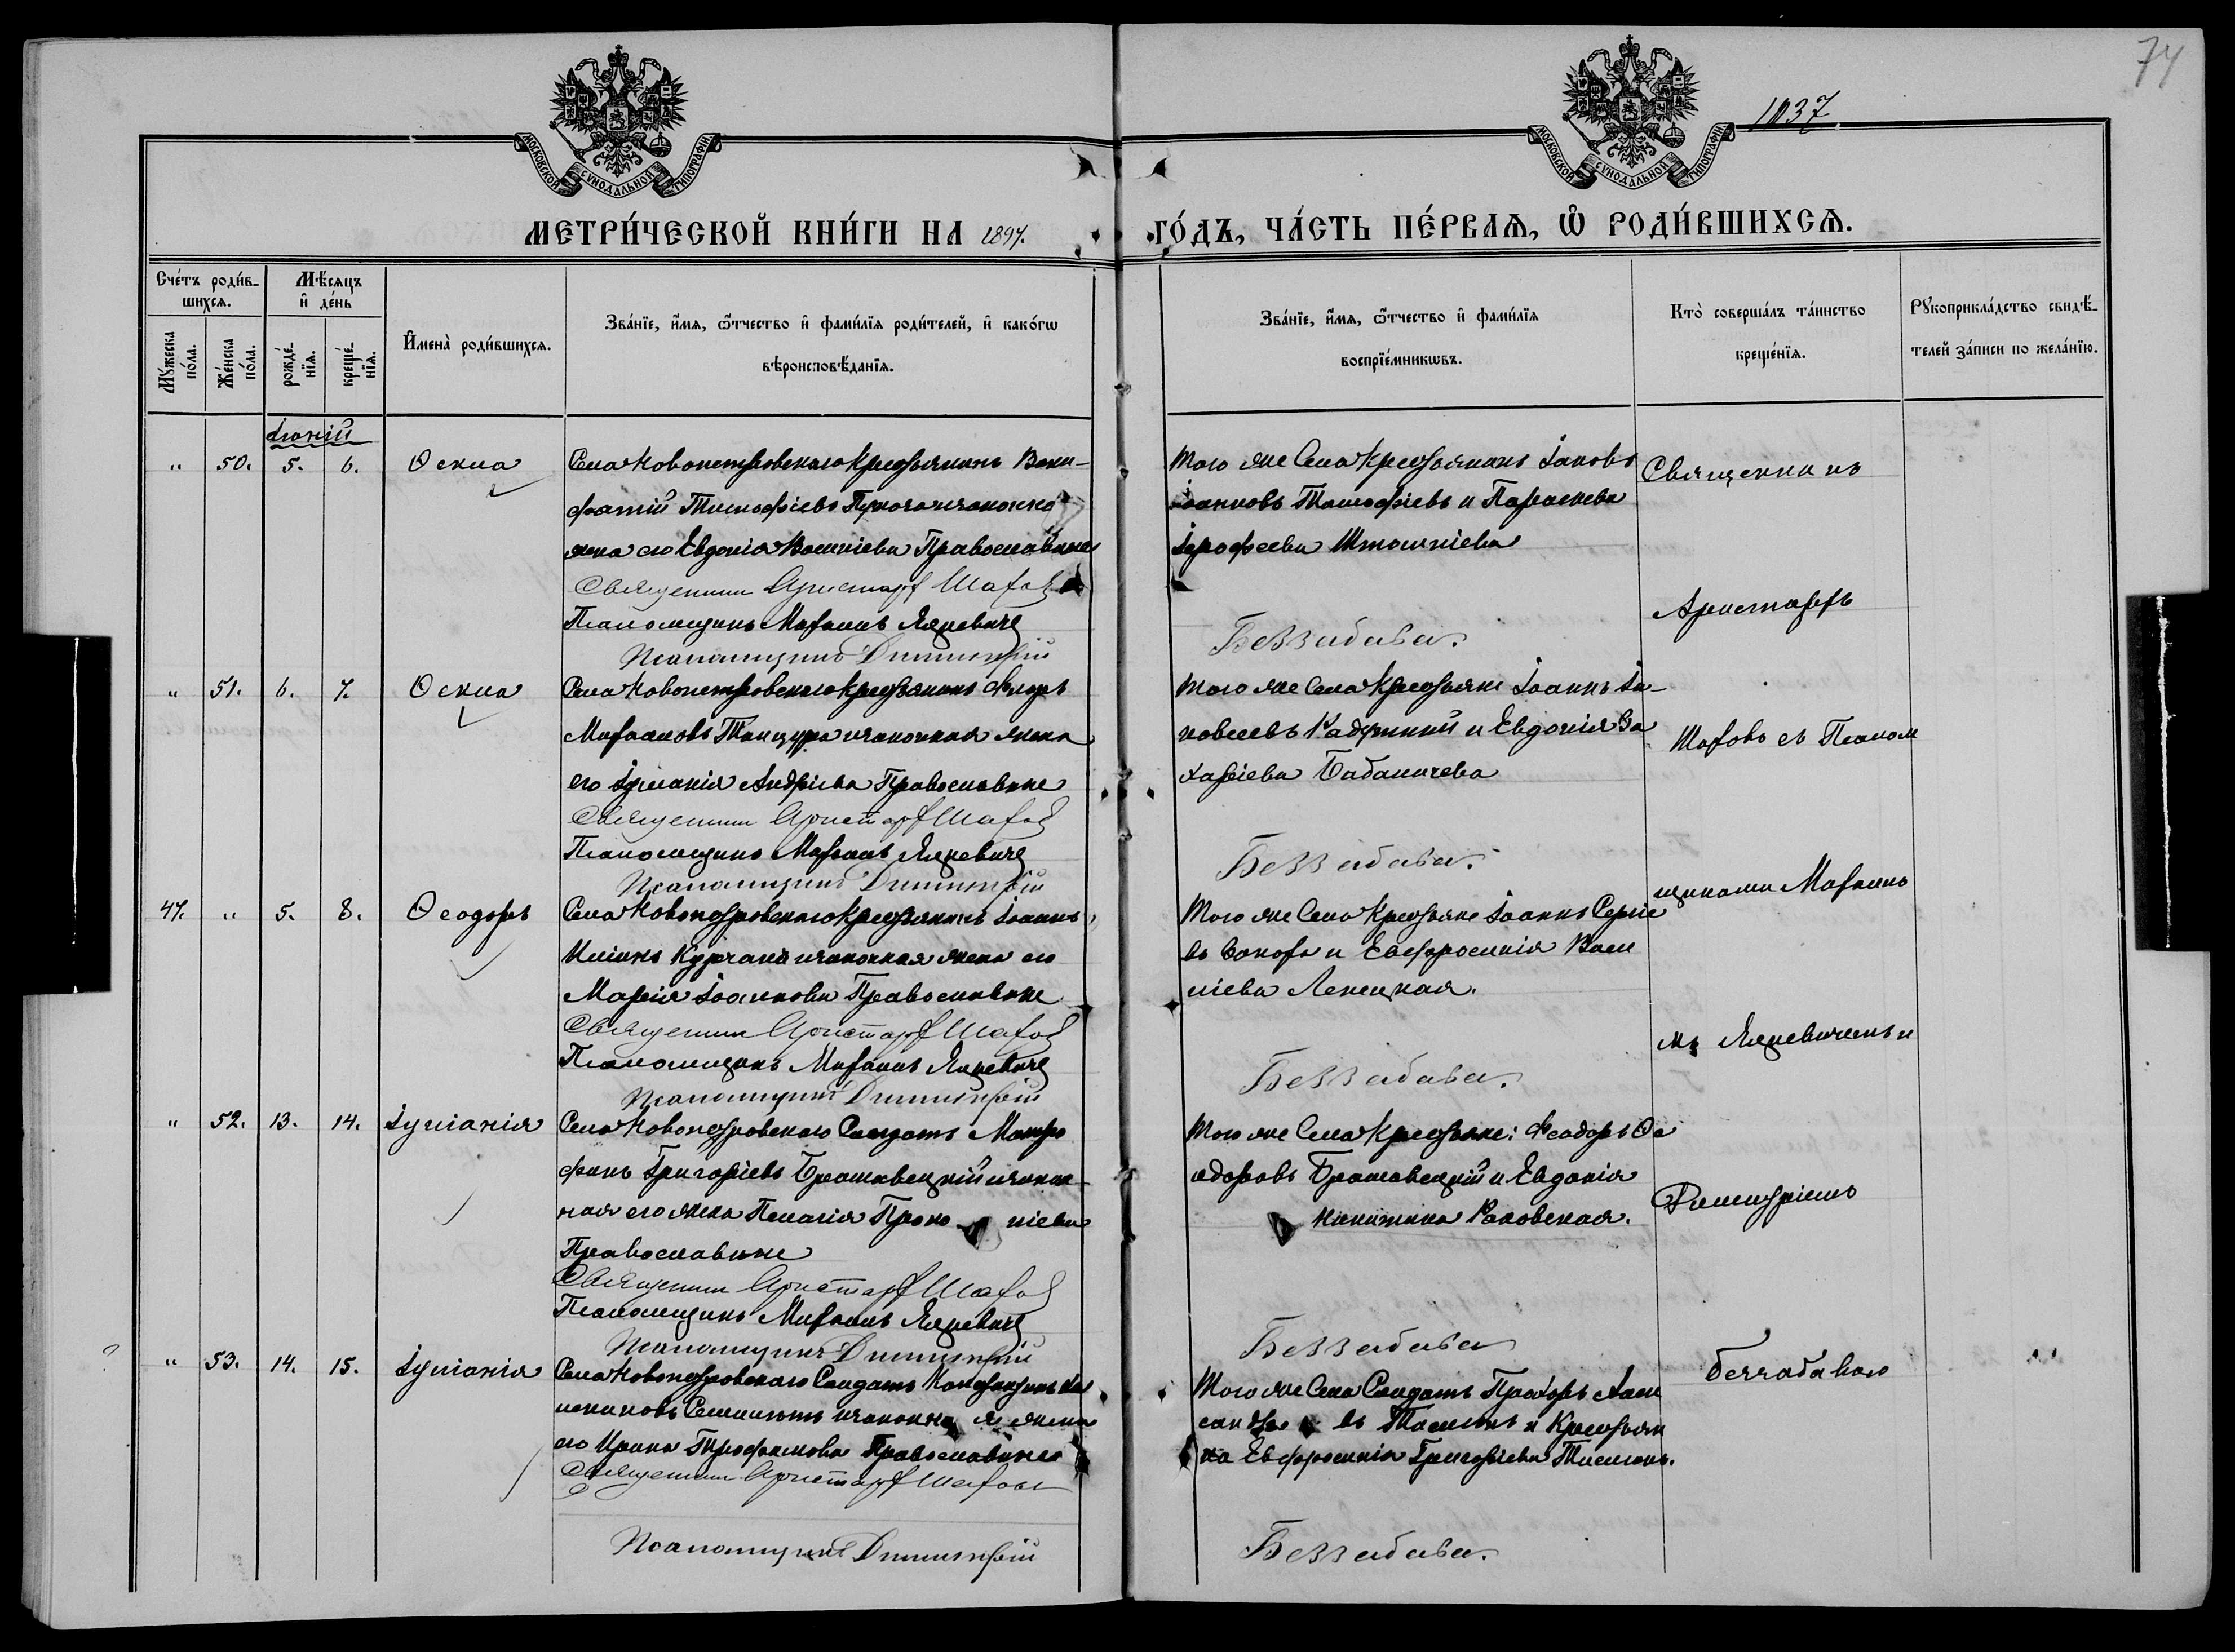 74
1037
МОСКОВСКОЙ СѴНОДАЛЬНОЙ ТИПОГРАФІИ
МОСКОВСКОЙ СѴНОДАЛЬНОЙ ТИПОГРАФІИ
МЕТРИ́ЧЕСКОЙ КНИ́ГИ НА 1897. ГО́ДЪ, ЧА́СТЬ ПЕ́РВАѦ, Ѽ РОДИ́ВШИХСѦ.
Сче́тъ роди́в-
шихсѧ.
Мѣ́сѧцъ
и҆ де́нь
Мꙋ́жеска
по́ла.
Же́нска
по́ла.
рожде́-
нїѧ.
креще́-
нїѧ.
И҆мена̀ роди́вшихсѧ.
Зва́нїе, и҆́мѧ, ѻ҆́тчество и҆ фами́лїѧ роди́телей, и҆ како́гѡ
вѣроисповѣ́данїѧ.
Зва́нїе, и҆́мѧ, ѻ҆́тчество и҆ фами́лїѧ
воспрїе́мникѡвъ.
Кто̀ соверша́лъ та́инство
креще́нїѧ.
Рꙋкоприкла́дство свидѣ́-
телей за́писи по жела́нїю.
Іюній
" 50. 5. 6. Ѳекла
Села Новопетровскаго крестьянинъ Вони-
фатій Тимофіевъ
жена его Евдокія Василіева Православные
Священник Аристарх Шахов
Псаломщикъ Михаилъ Яцкевичъ
Псаломщикъ Димитрій
Того же Села крестьянинъ Іаковъ
Іоанновъ Тимофіевъ и Параскева
Іерофеева
Беззабава.
Священникъ
Аристархъ
" 51. 6. 7. Ѳекла
Села Новопетровскаго крестьянинъ Флоръ
Михаиловъ Танцура и законная жена
его Іуліанія Андріева Православные
Священник Аристарх Шахов
Псаломщикъ Михаилъ Яцкевичъ
Псаломщикъ Димитрій
Того же Села крестьяне Іоаннъ Іа-
ковлевъ и Евдокія За
харіева Бабаничева
Беззабава.
Шаховъ съ Псалом
щиками Михаило
47. " 5. 8. Ѳеодоръ
Села Новопетровскаго крестьянинъ Іоаннъ
Иліинъ и законная жена его
Марія Іоаннова Православные
Священник Аристарх Шахов
Псаломщикъ Михаилъ Яцкевичъ
Псаломщикъ Димитрій
Того же Села крестьяне Іоаннъ Сергіе
въ и Евфросинія Васи
ліева
Беззабава.
мъ Яцкевичемъ и
" 52. 13. 14. Іуліанія
Села Новопетровскаго Солдатъ Митро
фанъ Григоріевъ Брашовецкій и закон-
ная его жена Пелагія Проко піева
Православные
Священник Аристарх Шахов
Псаломщикъ Михаилъ Яцкевичъ
Псаломщикъ Димитрій
Того же Села крестьяне: Феодоръ Ѳе
одоровъ Брашовецкій и Евдокія
Никитина Раковская.
Беззабава
Димитріемъ
" 53. 14. 15. Іуліанія
Села Новопетровскаго Солдатъ
Семилетъ и законная жена
его Ирина Трофимова Православные
Священник Аристарх Шахов
Псаломщикъ Димитрій
Того же Села Солдатъ Прохоръ Алек
сандро въ и Крестьян
ка Евфросинія Григоріева
Беззабава.
Беззабавою